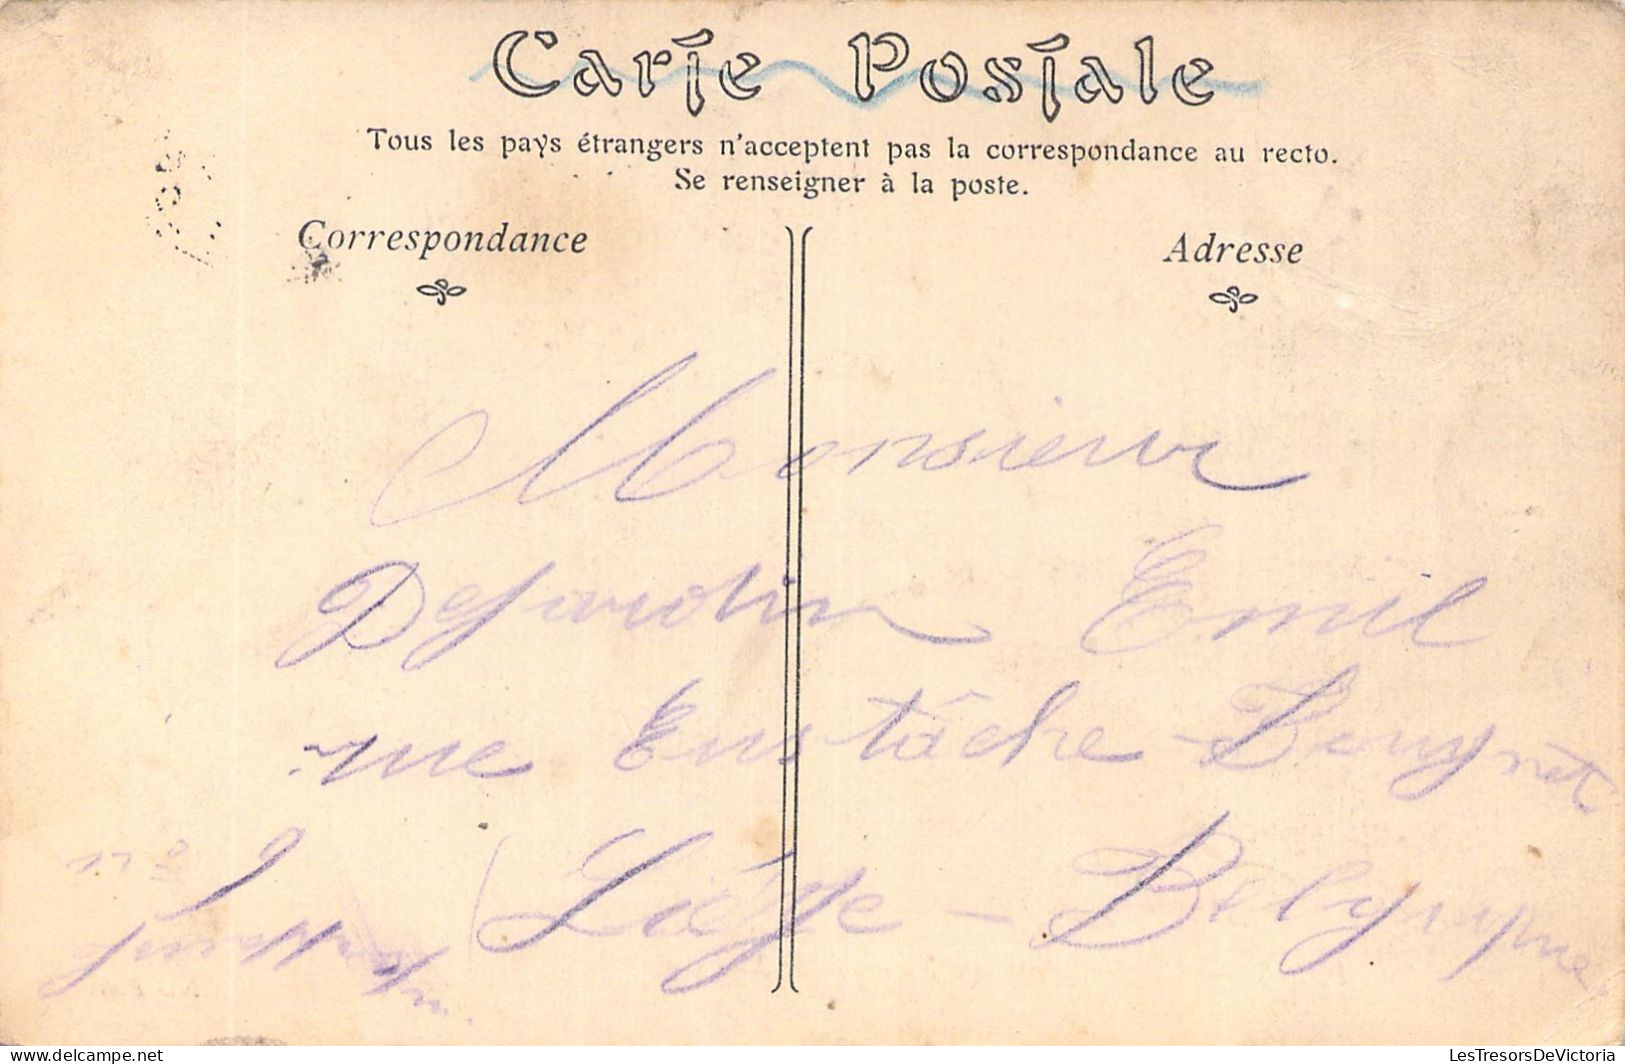 Carte Postale
Tous les pays étrangers n'acceptent pas la correspondance au recto.
Se renseigner à la poste.
Correspondance
Adresse
Monsieur
Dejardin Emil
rue Eustache-Bouynet
Liége - Belgique
LesTresorsDeVictoria (FR) - delcampe.net